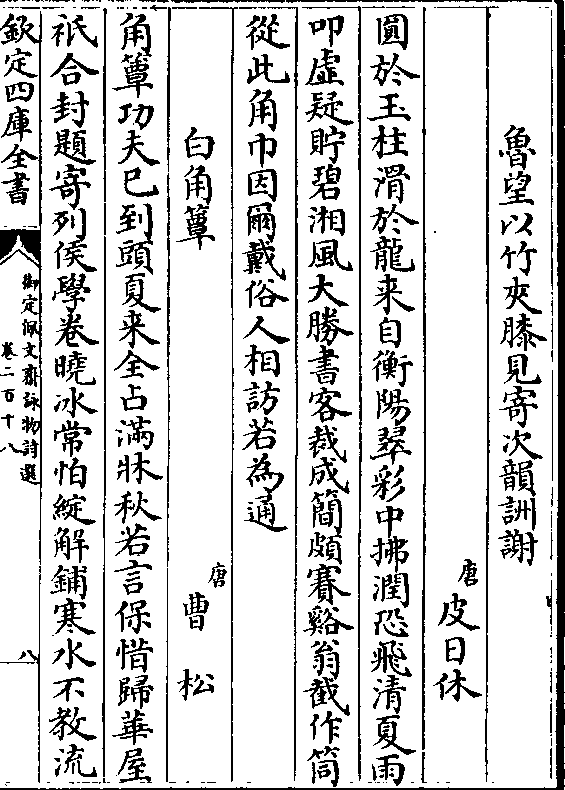 魯望以竹夾膝見寄次韻詶謝
唐皮日休
圓於玉柱滑於龍来自衡陽翠彩中拂潤恐飛清夏雨
叩虚疑貯碧湘風大勝書客裁成簡頗賽谿翁截作筒
從此角巾因爾戴俗人相訪若為通
白角簟
唐曹松
角簟功夫已到頭夏来全占滿牀秋若言保惜歸華屋
祇合封題寄列侯學卷曉冰常怕綻解鋪寒水不教流
欽定四庫全書
御定佩文齋詠物詩選
卷二百十八
八